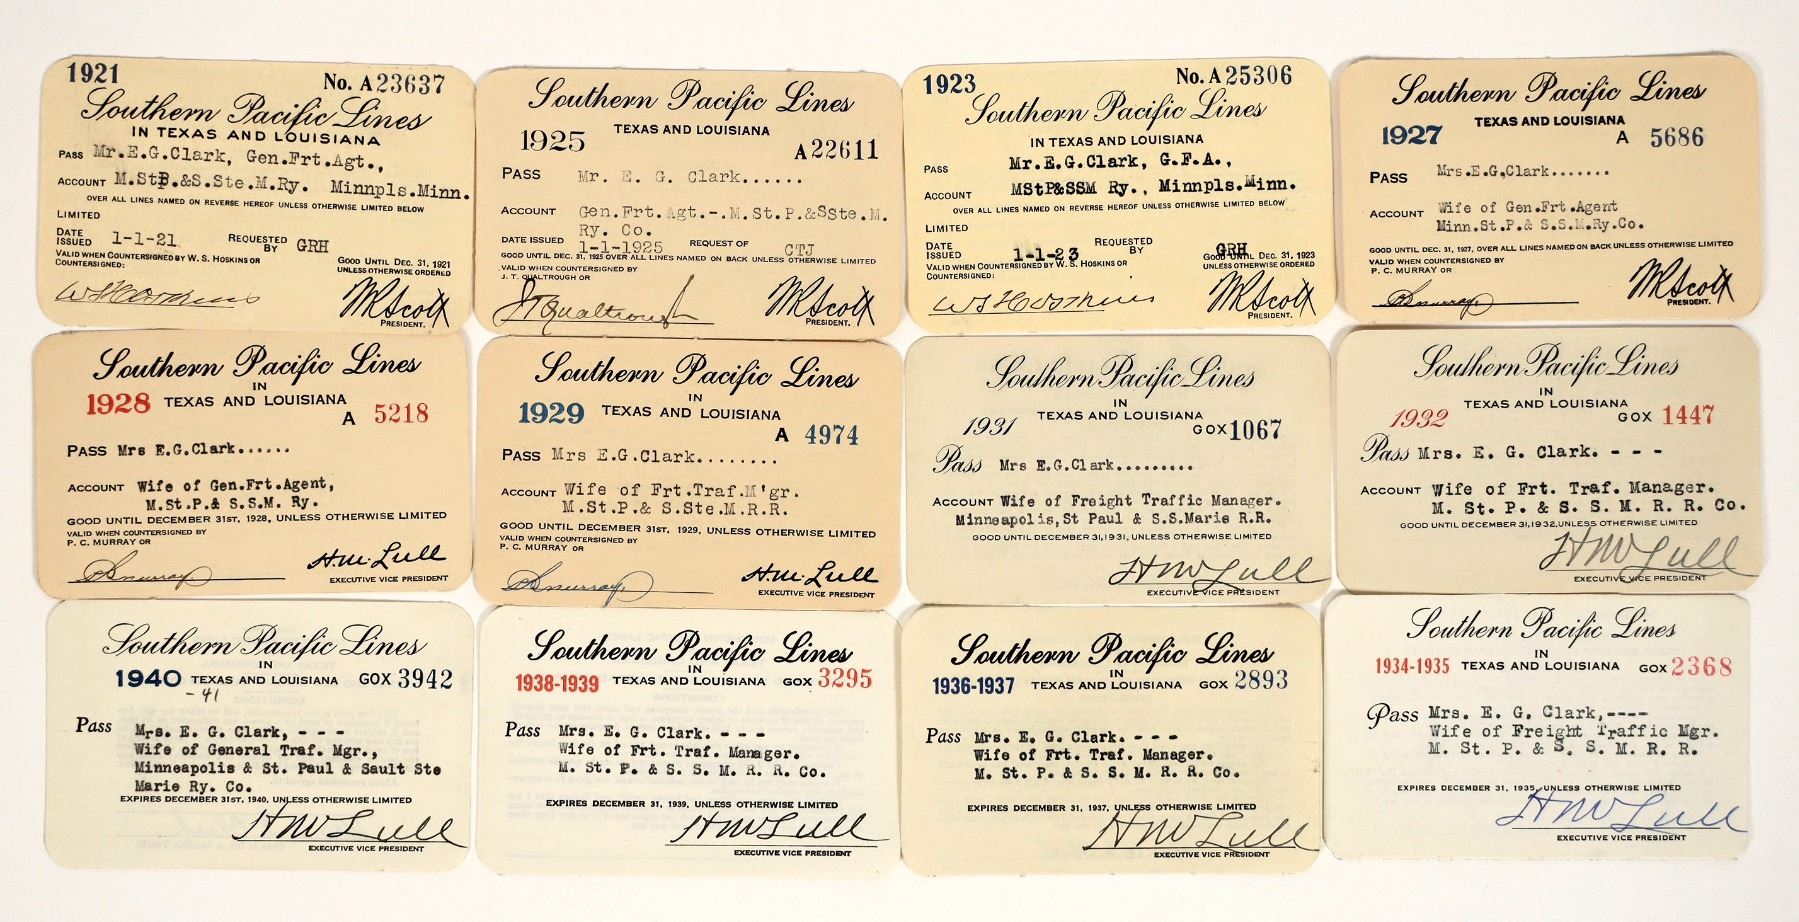 1921
No. A23637
Southern Pacific Lines
IN TEXAS AND LOUISIANA
PASS Mr.E.G.Clark, Gen.Frt.Agt.,
ACCOUNT M.StP.&S.Ste.M.Ry. Minnpls.Minn.
OVER ALL LINES NAMED ON REVERSE HEREOF UNLESS OTHERWISE LIMITED BELOW
LIMITED
DATE ISSUED 1-1-21 REQUESTED BY GRH
VALID WHEN COUNTERSIGNED BY W. S. HOSKINS OR
COUNTERSIGNED:
GOOD UNTIL DEC. 31, 1921
UNLESS OTHERWISE ORDERED
WS Hoskins
WR Scott
PRESIDENT.
Southern Pacific Lines
1925 TEXAS AND LOUISIANA
A22611
PASS Mr. E. G. Clark......
ACCOUNT Gen.Frt.Agt.-.M.St.P.&SSte.M.
Ry. Co.
DATE ISSUED 1-1-1925 REQUEST OF CTJ
GOOD UNTIL DEC. 31, 1925 OVER ALL LINES NAMED ON BACK UNLESS OTHERWISE LIMITED
VALID WHEN COUNTERSIGNED BY
J. T. QUALTROUGH OR
JT Qualtrough
WR Scott
PRESIDENT.
1923
No. A25306
Southern Pacific Lines
IN TEXAS AND LOUISIANA
PASS Mr.E.G.Clark, G.F.A.,
ACCOUNT MStP&SSM Ry., Minnpls.Minn.
OVER ALL LINES NAMED ON REVERSE HEREOF UNLESS OTHERWISE LIMITED BELOW
LIMITED
DATE ISSUED 1-1-23 REQUESTED BY GRH
VALID WHEN COUNTERSIGNED BY W. S. HOSKINS OR
COUNTERSIGNED:
GOOD UNTIL DEC. 31, 1923
UNLESS OTHERWISE ORDERED
WS Hoskins
WR Scott
PRESIDENT.
Southern Pacific Lines
1927 TEXAS AND LOUISIANA
A 5686
PASS Mrs.E.G.Clark.......
ACCOUNT Wife of Gen.Frt.Agent
Minn.St.P.& S.S.M.Ry.Co.
GOOD UNTIL DEC. 31, 1927, OVER ALL LINES NAMED ON BACK UNLESS OTHERWISE LIMITED
VALID WHEN COUNTERSIGNED BY
P. C. MURRAY OR
WR Scott
PRESIDENT.
Southern Pacific Lines
IN
1928 TEXAS AND LOUISIANA
A 5218
PASS Mrs E.G.Clark......
ACCOUNT Wife of Gen.Frt.Agent,
M.St.P.& S.S.M. Ry.
GOOD UNTIL DECEMBER 31ST, 1928, UNLESS OTHERWISE LIMITED
VALID WHEN COUNTERSIGNED BY
P. C. MURRAY OR
H.M. Lull
EXECUTIVE VICE PRESIDENT
Southern Pacific Lines
IN
1929 TEXAS AND LOUISIANA
A 4974
PASS Mrs E.G.Clark........
ACCOUNT Wife of Frt.Traf.M'gr.
M.St.P.& S.Ste.M.R.R.
GOOD UNTIL DECEMBER 31ST, 1929, UNLESS OTHERWISE LIMITED
VALID WHEN COUNTERSIGNED BY
P. C. MURRAY OR
H.M. Lull
EXECUTIVE VICE PRESIDENT
Southern Pacific Lines
IN
1931 TEXAS AND LOUISIANA
GOX1067
Pass Mrs E.G.Clark.........
ACCOUNT Wife of Freight Traffic Manager.
Minneapolis,St Paul & S.S.Marie R.R.
GOOD UNTIL DECEMBER 31,1931, UNLESS OTHERWISE LIMITED
HM Lull
EXECUTIVE VICE PRESIDENT
Southern Pacific Lines
IN
1932 TEXAS AND LOUISIANA
GOX 1447
Pass Mrs. E. G. Clark. - - -
ACCOUNT Wife of Frt. Traf. Manager.
M. St. P. & S. S. M. R. R. Co.
GOOD UNTIL DECEMBER 31,1932,UNLESS OTHERWISE LIMITED
HM Lull
EXECUTIVE VICE PRESIDENT
Southern Pacific Lines
IN
1940 TEXAS AND LOUISIANA GOX 3942
-41
Pass Mrs. E. G. Clark, - - -
Wife of General Traf. Mgr.,
Minneapolis & St. Paul & Sault Ste
Marie Ry. Co.
EXPIRES DECEMBER 31ST, 1940, UNLESS OTHERWISE LIMITED
HM Lull
EXECUTIVE VICE PRESIDENT
Southern Pacific Lines
IN
1938-1939 TEXAS AND LOUISIANA GOX 3295
Pass Mrs. E. G. Clark. - - -
Wife of Frt. Traf. Manager.
M. St. P. & S. S. M. R. R. Co.
EXPIRES DECEMBER 31, 1939, UNLESS OTHERWISE LIMITED
HM Lull
EXECUTIVE VICE PRESIDENT
Southern Pacific Lines
IN
1936-1937 TEXAS AND LOUISIANA GOX 2893
Pass Mrs. E. G. Clark. - - -
Wife of Frt. Traf. Manager.
M. St. P. & S. S. M. R. R. Co.
EXPIRES DECEMBER 31, 1937, UNLESS OTHERWISE LIMITED
HM Lull
EXECUTIVE VICE PRESIDENT
Southern Pacific Lines
IN
1934-1935 TEXAS AND LOUISIANA GOX 2368
Pass Mrs. E. G. Clark,----
Wife of Freight Traffic Mgr.
M. St. P. & S. S. M. R. R.
EXPIRES DECEMBER 31, 1935, UNLESS OTHERWISE LIMITED
HM Lull
EXECUTIVE VICE PRESIDENT